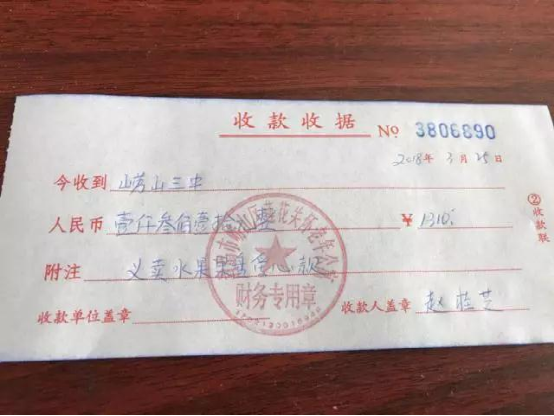 收款收据 No 3806890
2018年3月25日
今收到 崂山三中
人民币 壹仟叁佰壹拾元整 ¥1310
附注 义卖水果 爱心款
财务专用章
收款单位盖章 收款人盖章 赵桂芝
②收款联